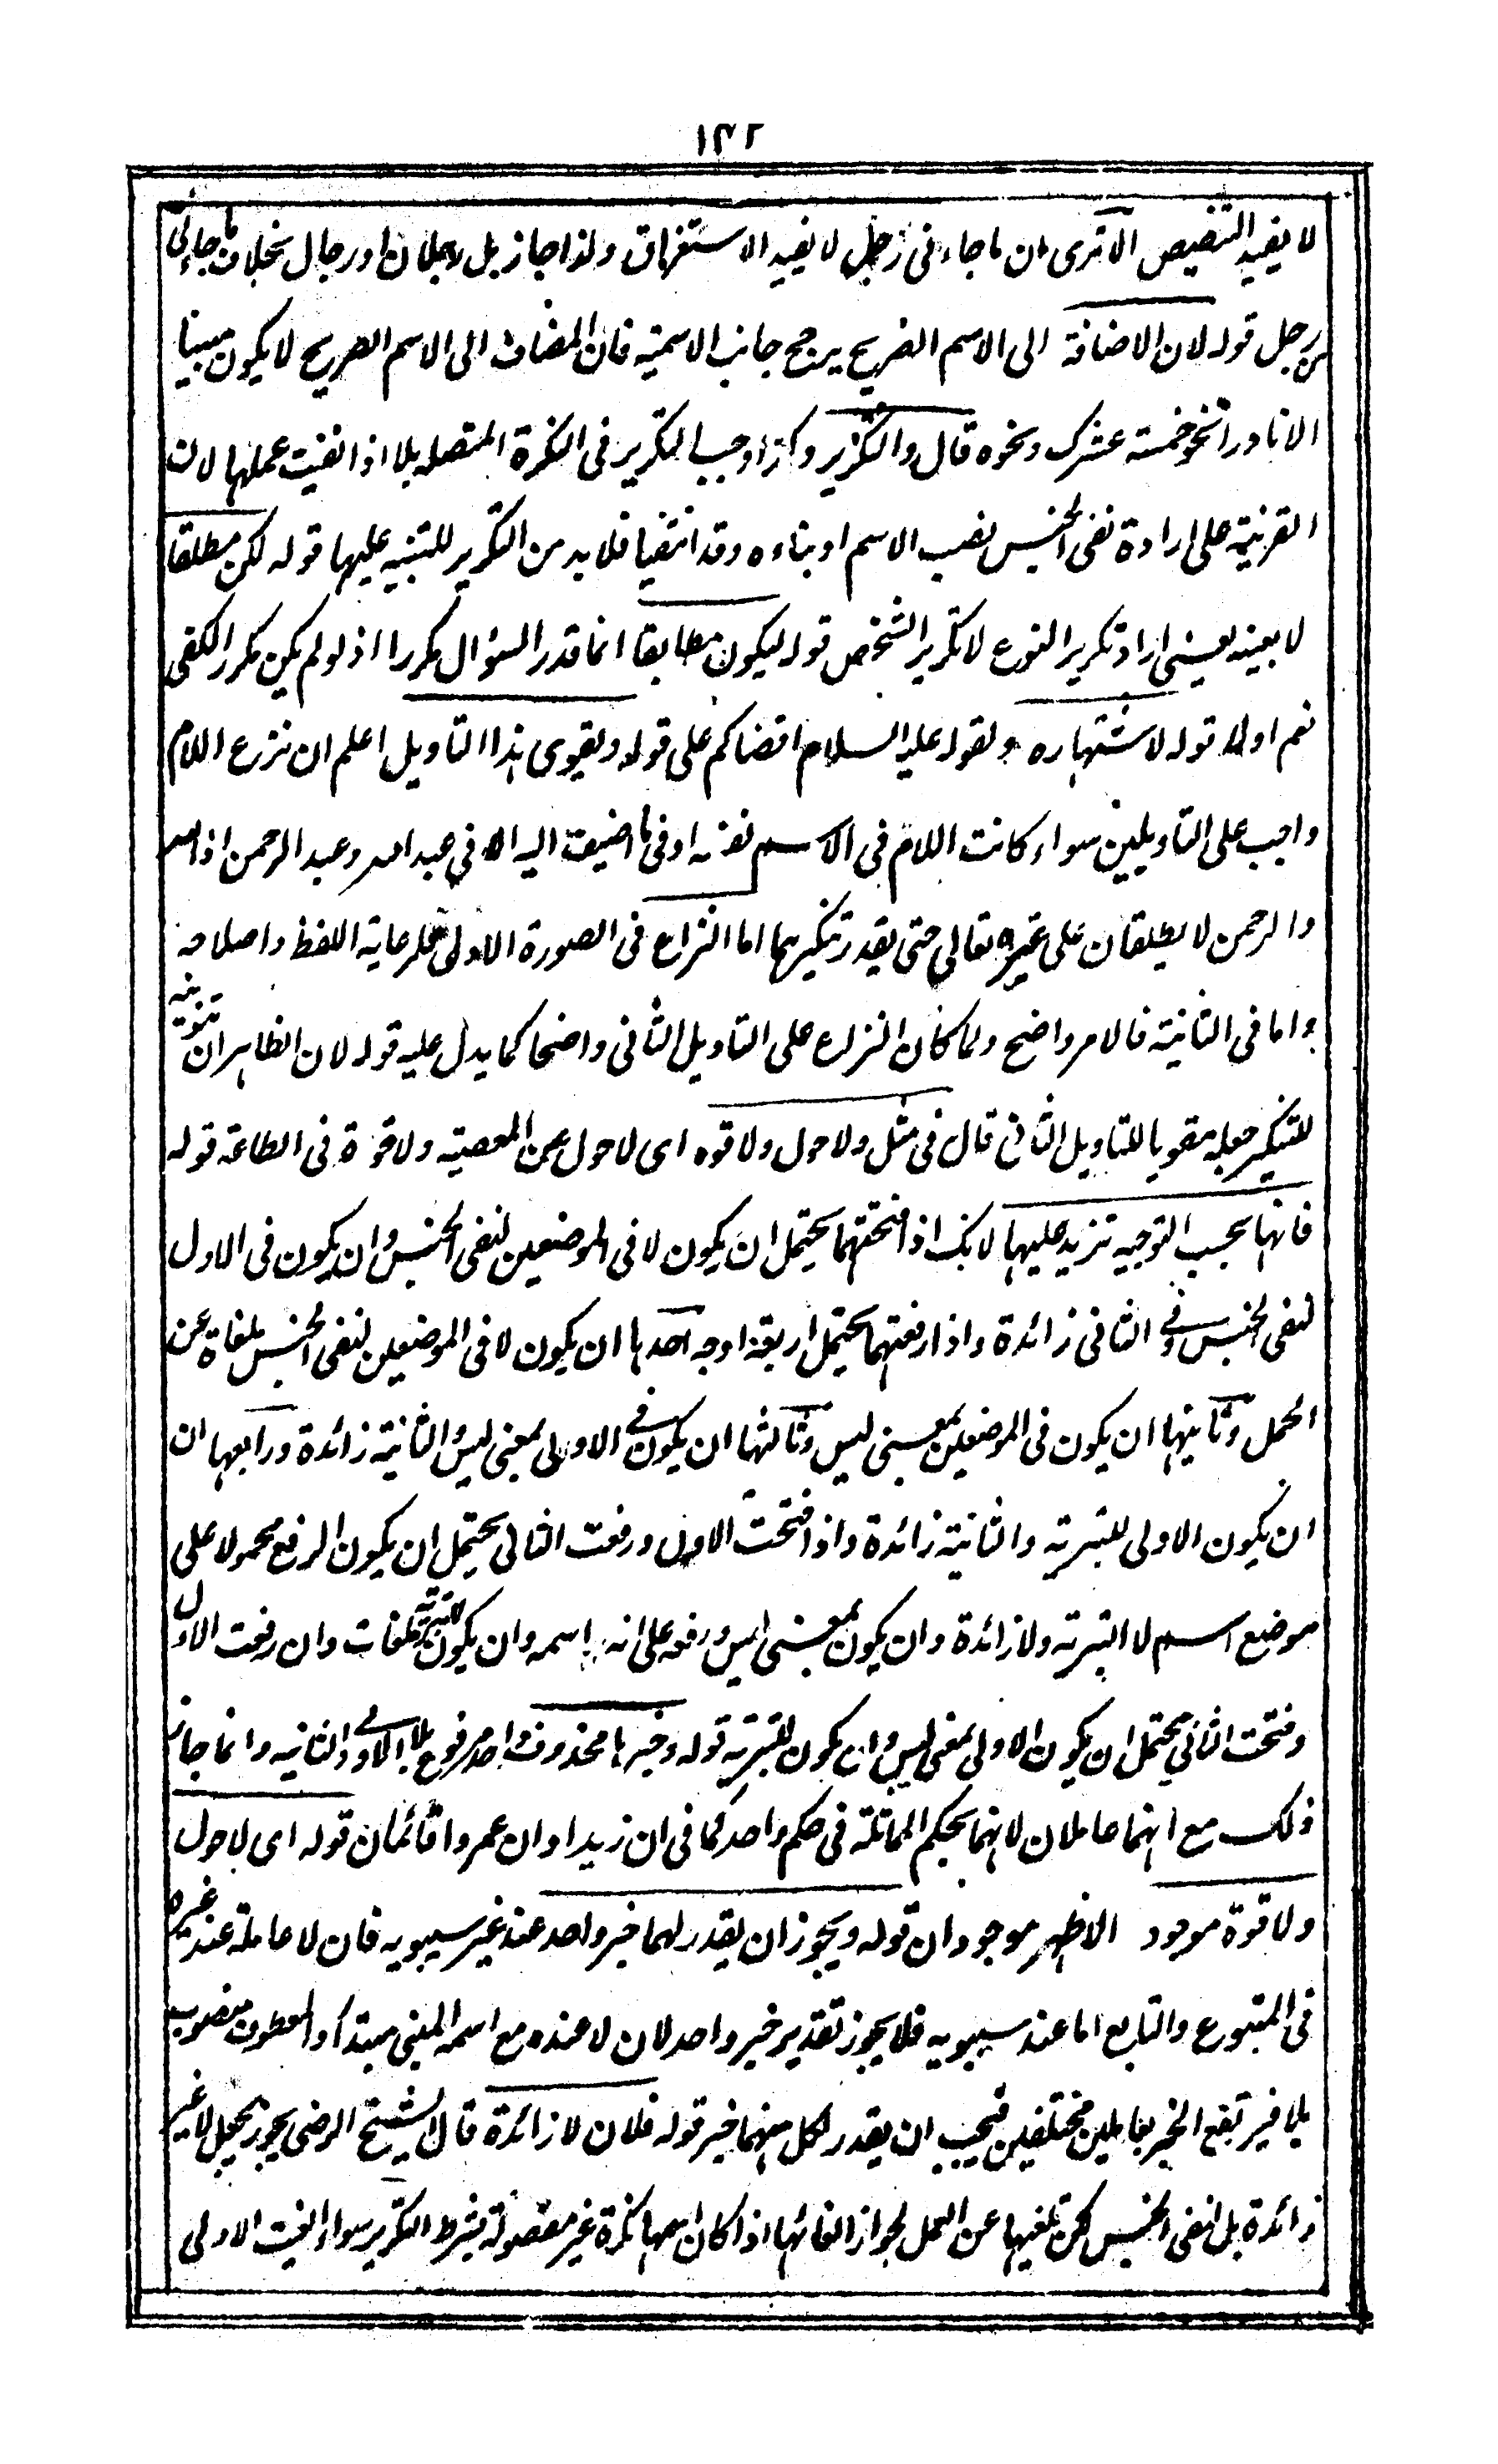 ١٣٢
لا يفيد التنصيص الا ترى ان ما جاءنى رجل لا يفيد الاستغراق ولذا جاز بل رجلان او رجال بخلاف ما جاءنى
من رجل قوله لان الاضافة الى الاسم الصريح يرجح جانب الاسمية فان المضاف الى الاسم الصريح لا يكون مبنيا
الا نادرا نحو خمسة عشرك ونحوه قال والتكرير وكذا وجب التكرير فى النكرة المتصلة بلا اذا نفيت عملها لان
القرينة على ارادة نفى الجنس نصب الاسم او بناءه وقد انتفيا فلا بد من التكرير للتنبيه عليها قوله لكن مطلقا
لا بعينه يعنى اراد تكرير النوع لا تكرير الشخص قوله ليكون مطابقا انما قدر السؤال مكررا اذ لو لم يكن مكرر الكفى
نعم او لا قوله لاشتهاره ولقوله عليه السلام اقضاكم على قوله ويقوى هذا التاويل اعلم ان نزع اللام
واجب على التاويلين سواء كانت اللام فى الاسم نفسه او فى ما اضيف اليه الا فى عبد الله وعبد الرحمن اذ الله
والرحمن لا يطلقان على غيره تعالى حتى يقدر تنكيرهما اما النزاع فى الصورة الاولى فلرعاية اللفظ واصلاحه
واما فى الثانية فالامر واضح ولما كان النزاع على التاويل الثانى واضحا كما يدل عليه قوله لان الظاهر ان تنوينه
للتنكير جعله مقويا للتاويل الثانى قال فى مثل ولا حول ولا قوه اى لا حول عن المعصية ولا قوة فى الطاعة قوله
فانها بحسب التوجيه تزيد عليها لانك اذا فتحتهما يحتمل ان يكون لا فى الموضعين لنفى الجنس وان يكون فى الاول
لنفى الجنس وفى الثانى زائدة واذا رفعتهما يحتمل اربعة اوجه احدها ان يكون لا فى الموضعين لنفى الجنس ملغاة عن
العمل وثانيها ان يكون فى الموضعين بمعنى ليس وثالثها ان يكون فى الاولى بمعنى ليس والثانية زائدة ورابعها ان
ان يكون الاولى للتبرية والثانية زائدة واذا فتحت الاول ورفعت الثانى يحتمل ان يكون الرفع محمولا على
موضع اسم لا التبرية ولا زائدة وان يكون بمعنى ليس ورفعه على انه اسمه وان يكون للتبرية ملغاة وان رفعت الاول
وفتحت الثانى يحتمل ان يكون الاولى بمعنى ليس وان يكون للتبرية قوله وخبرها محذوف واحد مرفوع بلا الاولى والثانيه وانما جاز
ذلك مع انهما عاملان لانهما بحكم المماثلة فى حكم واحد كما فى ان زيدا وان عمروا قائمان قوله اى لا حول
ولا قوة موجود الاظهر موجودان قوله ويجوز ان يقدر لهما خبر واحد عند غير سيبويه فان لا عاملة عند غيره
فى المتبوع والتابع اما عند سيبويه فلا يجوز تقدير خبر واحد لان لا عنده مع اسمه المبنى مبتدأ والمعطوف منصوب
بلا فيرتفع الخبر بعاملين مختلفين فيجب ان يقدر لكل منهما خبر قوله فلان لا زائدة قال الشيخ الرضى يجوز بجعل لا غير
زائدة بل لنفى الجنس لكن تلغيها عن العمل لجواز الغائها اذا كان اسمها نكرة غير مفصولة بشرط التكرير سواء الغيت الاولى